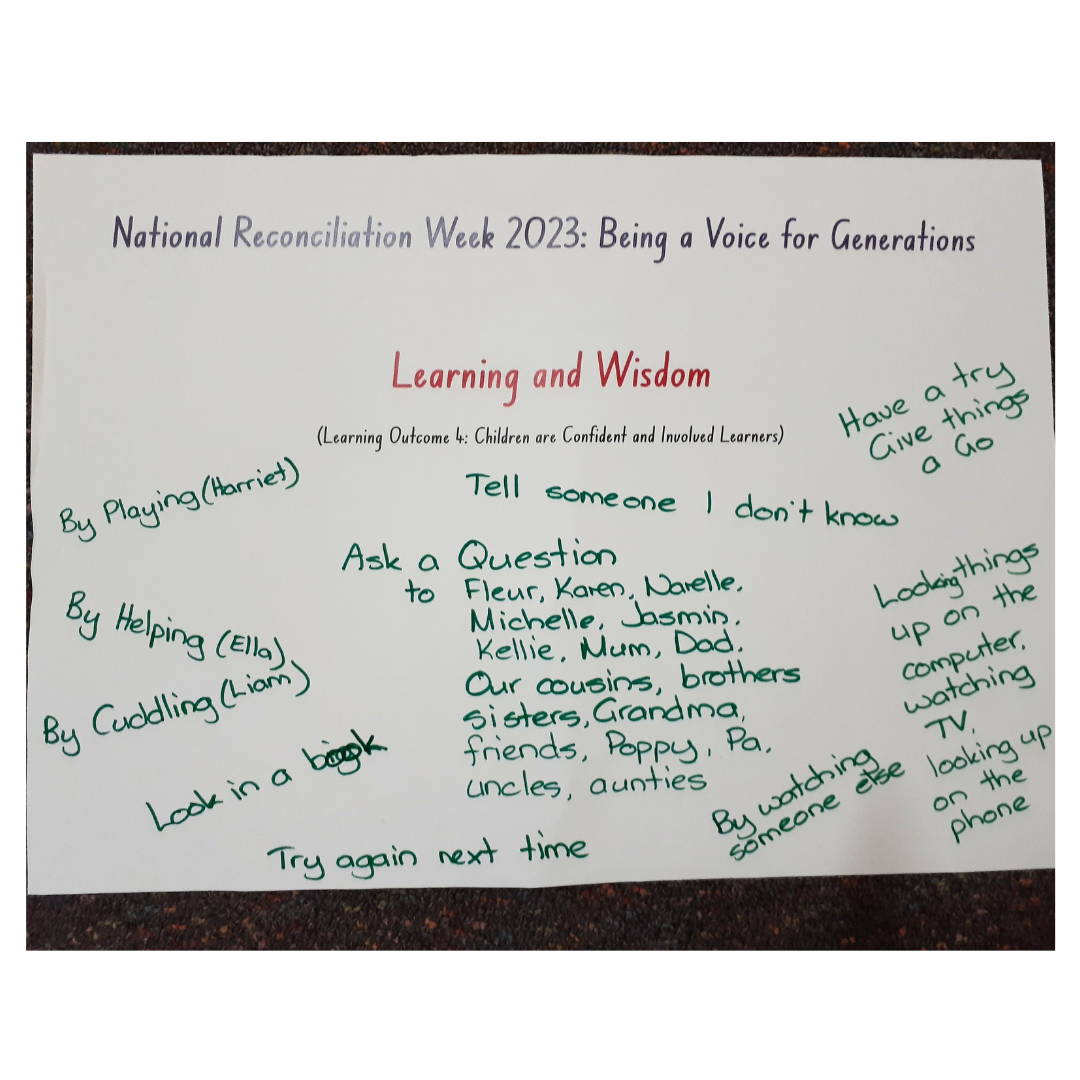 National Reconciliation Week 2023: Being a Voice for Generations
Learning and Wisdom
(Learning Outcome 4: Children are Confident and Involved Learners)
Have a try
Give things
a Go
By Playing (Harriet)
Tell someone I don't know
Ask a Question
to Fleur, Karen, Narelle,
Michelle, Jasmin,
Kellie, Mum, Dad,
Our cousins, brothers
sisters, Grandma,
friends, Poppy, Pa,
uncles, aunties
By Helping (Ella)
By Cuddling (Liam)
Look in a book
Try again next time
Looking things
up on the
computer,
watching
TV,
looking up
on the
phone
By watching
someone else